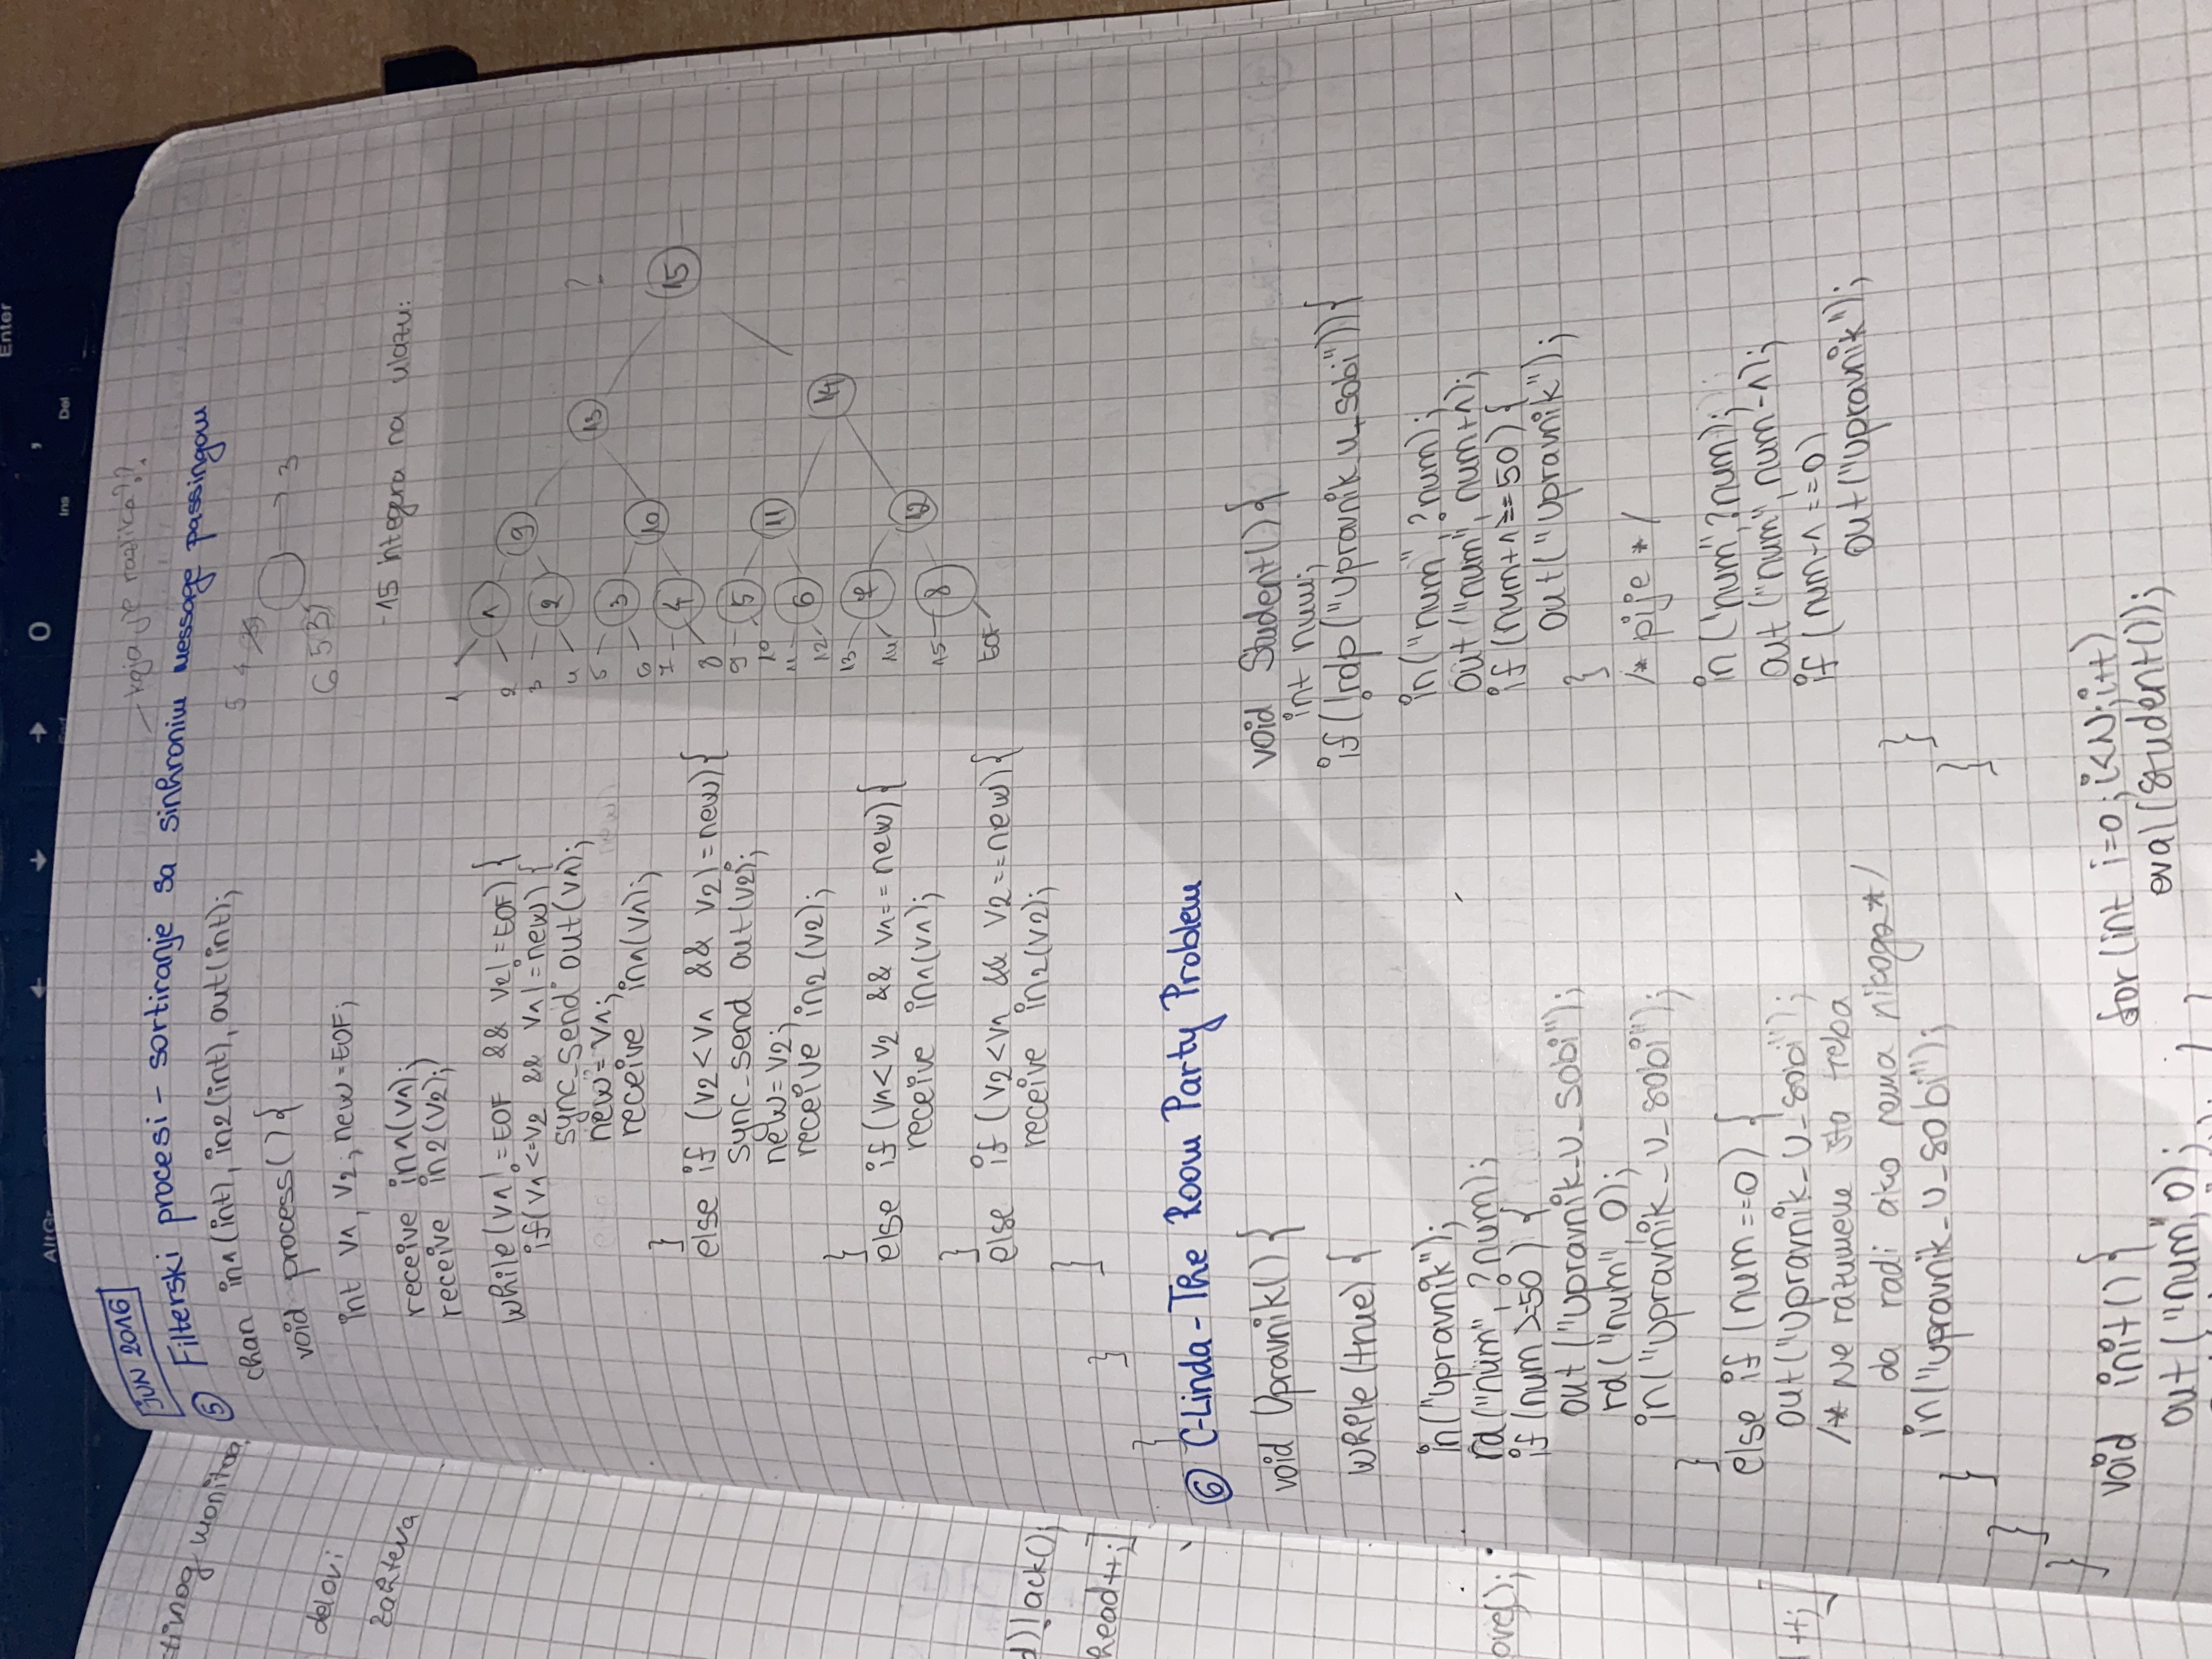 Enter
AltGr
0
,
Ins
Del
JUN 2016
- koja je razlika??
⑤ Filterski procesi - sortiranje sa sinhronim message passingom
chan in1(int), in2(int), out(int);
void process(){
int v1, v2, new=EOF;
receive in1(v1);
receive in2(v2);
while(v1!=EOF && v2!=EOF){
if(v1<=v2 && v1!=new){
sync_send out(v1);
new=v1;
receive in1(v1);
}
else if (v2<v1 && v2!=new){
sync_send out(v2);
new=v2;
receive in2(v2);
}
else if(v1<v2 && v1==new){
receive in1(v1);
}
else if(v2<v1 && v2==new){
receive in2(v2);
}
}
}
5 4
3
6 5 3
-15 integera na ulazu:
1
2
3
4
5
6
7
8
9
10
11
12
13
14
15
EOF
1
2
3
4
5
6
7
8
9
10
11
12
13
14
15
?
⑥ C-Linda - The Room Party Problem
void Upravnik(){
while(true){
in("upravnik");
rd("num", ?num);
if(num>=50){
out("upravnik_u_sobi");
rd("num", 0);
in("upravnik_u_sobi");
}
else if(num==0){
out("upravnik_u_sobi");
/* Ne razumem sta treba
da radi ako nema nikoga */
in("upravnik_u_sobi");
}
}
}
void Student(){
int num;
if(!rdp("upravnik_u_sobi")){
in("num", ?num);
out("num", num+1);
if(num+1>=50){
out("upravnik");
}
/* pije */
in("num",?num);
out("num", num-1);
if(num-1==0)
out("upravnik");
}
}
void init(){
out("num", 0);
for(int i=0;i<N;i++)
eval(student());
tivnog monitora
delovi
zahteva
d)!ack();
head++;]
ove();
++;